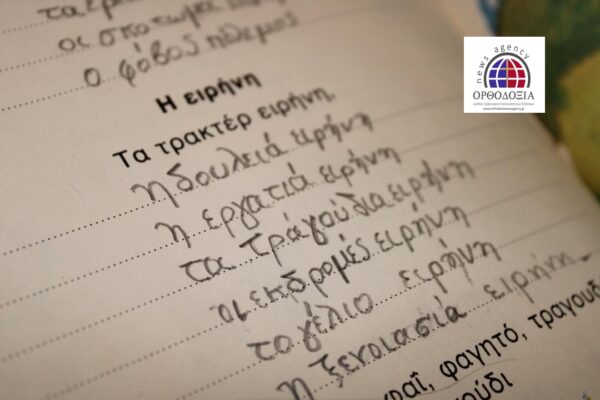 ο φόβος πόλεμος
Η ειρήνη
Τα τρακτέρ ειρήνη,
η δουλειά ειρήνη
η εργατιά ειρήνη
τα τραγούδια ειρήνη
οι εκδρομές ειρήνη
το γέλιο ειρήνη
η ξενοιασία ειρήνη
φαγητό,
news agency
ΟΡΘΟΔΟΞΙΑ
www.orthodoxianewsagency.gr